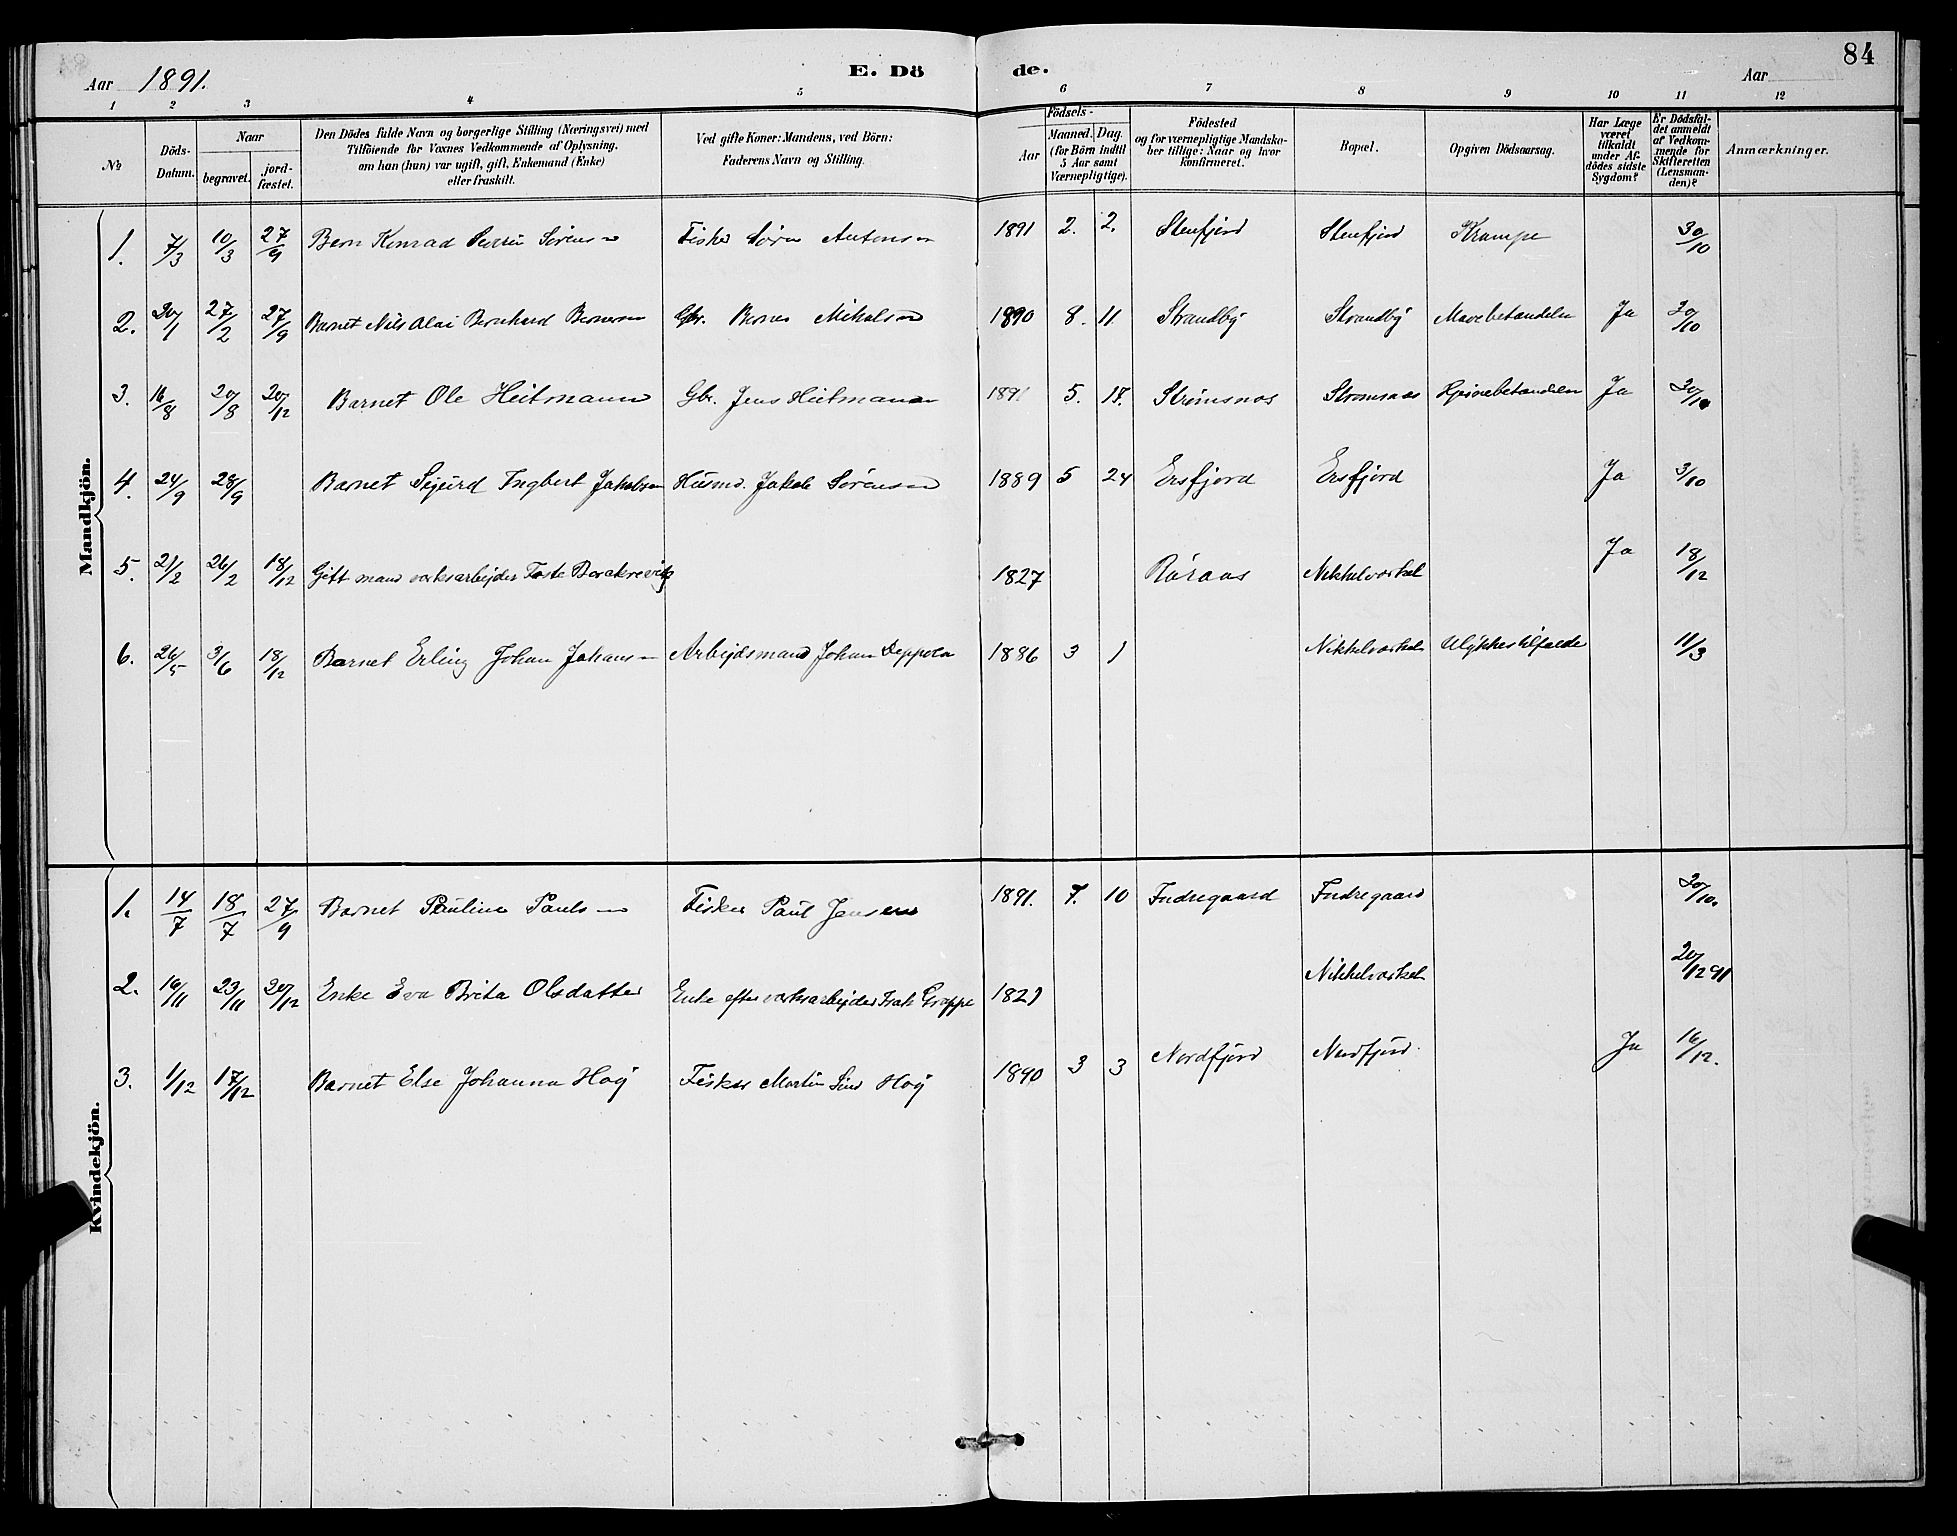 84
Aar 1891. E. Dö de. Aar
1 2 3 4 5 6 7 8 9 10 11 12
№
Döds-Datum.
Naar begravet. jordfæstet.
Den Dödes fulde Navn og borgerlige Stilling (Næringsvei) med
Tilföiende for Voxnes Vedkommende af Oplysning,
om han (hun) var ugift, gift, Enkemand (Enke)
eller fraskilt.
Ved gifte Koner: Mandens, ved Börn:
Faderens Navn og Stilling.
Födsels-
Aar Maaned. Dag.
(for Börn indtil
5 Aar samt
Værnepligtige).
Födested
og for værnepligtige Mandskaber tillige: Naar og hvor
konfirmeret.
Bopæl.
Opgiven Dödsaarsag.
Har Læge
været
tilkaldt
under Afdödes sidste
Sygdom?
Er Dödsfaldet anmeldt
af Vedkommende for
Skifteretten
(Lensmanden)?
Anmærkninger.
Mandkjön.
1. 7/3 10/3 27/9 Barn Konrad Sørensen Fisker Søren Antonsen 1891 2. 2. Stenfjord Stenfjord Krampe 30/10
2. 30/1 27/2 27/9 Barnet Nils Olai Bernhard Fisker Gbr. Mikalsen 1890 8. 11. Strandby Strandby Mavebetændelse Ja 30/10
3. 16/8 20/8 20/12 Barnet Ole Heitmann Gbr. Jens Heitmann 1891 5. 18. Strømsnæs Strømsnæs Hjernebetændelse Ja 30/10
4. 24/9 28/9 Barnet Sigurd Ingbert Jakobsen Husmd. Jakob Sørensen 1889 5 24 Ersfjord Ersfjord Ja 3/10
5. 21/2 26/2 18/12 Gift mand værksarbejder 1827 Röraas Nikkelværket Ja 18/12
6. 26/5 3/6 18/12 Barnet Erling Johan Johansen Arbejdsmand Johan 1886 3 1 Nikkelværket Ulykkestilfælde 11/3
Kvindekjön.
1. 14/7 18/7 27/9 Barnet Pauline Paulsen Fisker Paul Jensen 1891. 7. 10 Indregaard Indregaard 30/10.
2. 16/11 23/11 20/12 Enke Eva Brita Olsdatter Enke efter værksarbejder 1821 Nikkelværket 20/12 91
3. 1/12 17/12 Barnet Else Johanna Høy Fisker Martin Høy 1890 3 3 Nordfjord Nordfjord. Ja 16/12.